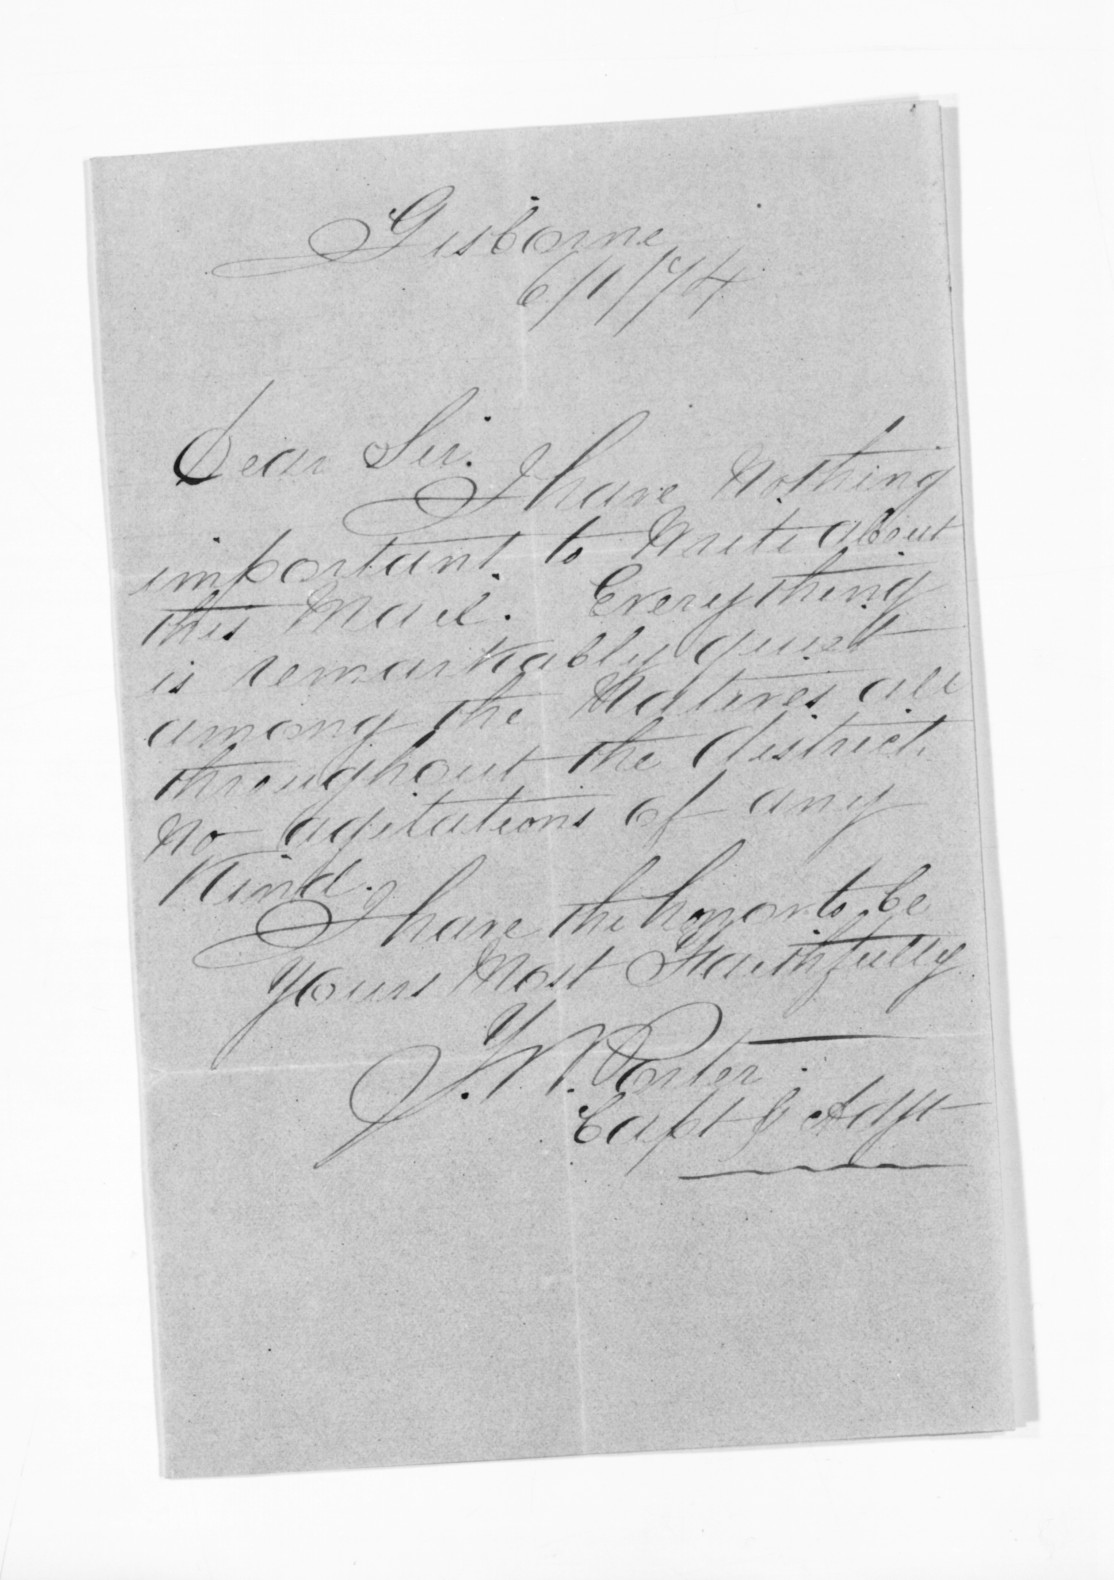 Gisborne
6/1/74
Dear Sir.
I have Nothing
important to Write about
this Mail. Everything
is remarkably quiet
among the Natives all
throughout the district
No agitations of any
Kind.
I have the honor to be
Yours Most Faithfully
T. W. Porter
Capt & Adjt